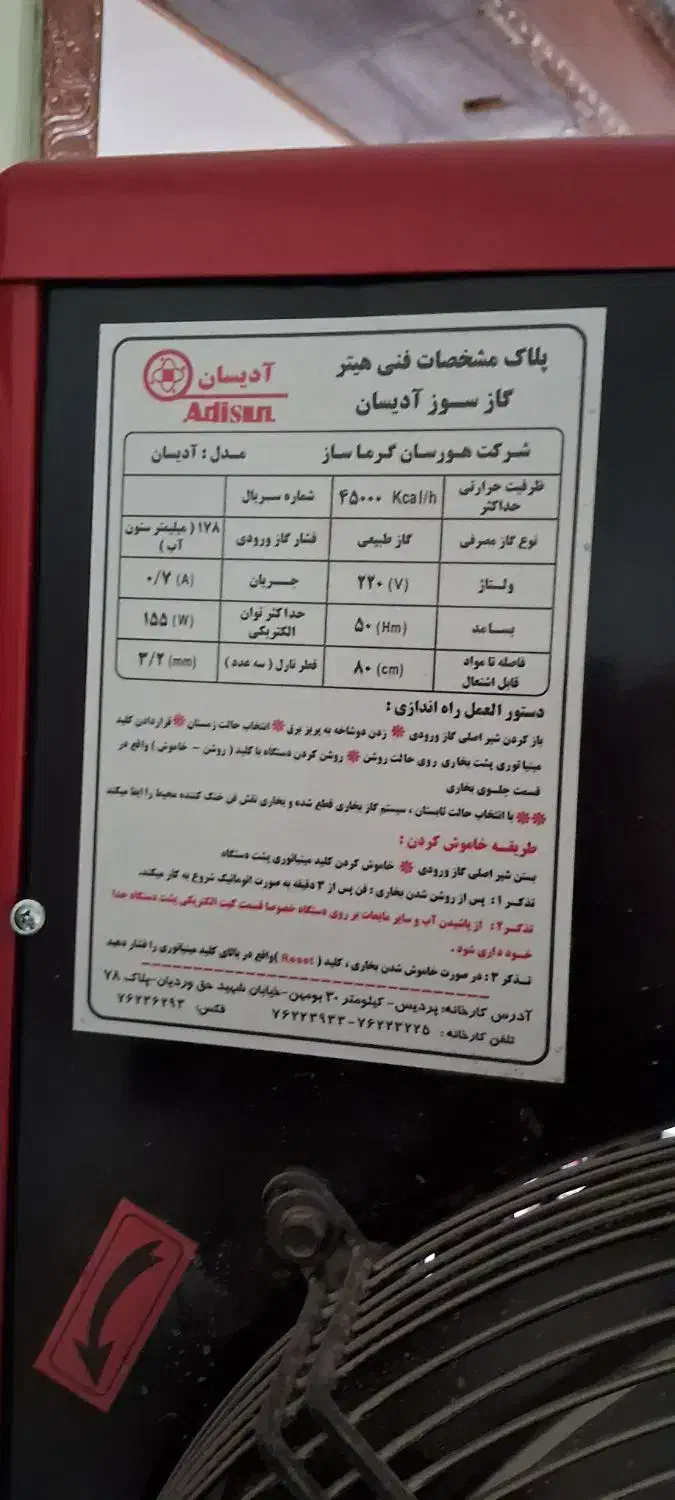 پلاک مشخصات فنی هیتر
گاز سوز آدیسان
آدیسان
Adisun
شرکت هورسان گرما ساز مدل : آدیسان
ظرفیت حرارتی حداکثر ۴۵۰۰۰ Kcal/h شماره سریال
نوع گاز مصرفی گاز طبیعی فشار گاز ورودی ۱۷۸ ( میلیمتر ستون آب )
ولتاژ ۲۲۰ (V) جریان ۰/۷ (A)
بسامد ۵۰ (Hm) حداکثر توان الکتریکی ۱۵۵ (W)
فاصله تا مواد قابل اشتعال ۸۰ (cm) قطر نازل ( سه عدد ) ۳/۲ (mm)
دستور العمل راه اندازی :
باز کردن شیر اصلی گاز ورودی ❋ زدن دوشاخه به پریز برق ❋ انتخاب حالت زمستان ❋ قراردادن کلید
مینیاتوری پشت بخاری روی حالت روشن ❋ روشن کردن دستگاه با کلید ( روشن - خاموش ) واقع در
قسمت جلوی بخاری
❋❋ با انتخاب حالت تابستان ، سیستم گاز بخاری قطع شده و بخاری نقش فن خنک کننده محیط را ایفا میکند
طریقه خاموش کردن :
بستن شیر اصلی گاز ورودی ❋ خاموش کردن کلید مینیاتوری پشت دستگاه
تذکر ۱ : پس از روشن شدن بخاری : فن پس از ۳ دقیقه به صورت اتوماتیک شروع به کار میکند.
تذکر ۲ : از پاشیدن آب و سایر مایعات بر روی دستگاه خصوصا قسمت کیت الکتریکی پشت دستگاه جدا
خود داری شود .
تذکر ۳ : در صورت خاموش شدن بخاری ، کلید ( Reset )واقع در بالای کلید مینیاتوری را فشار دهید
آدرس کارخانه: پردیس- کیلومتر ۳۰ بومهن-خیابان شهید حق وردیان-پلاک ۷۸
تلفن کارخانه : ۷۶۲۲۳۲۲۵-۷۶۲۲۳۹۳۳ فکس: ۷۶۲۳۶۲۹۳